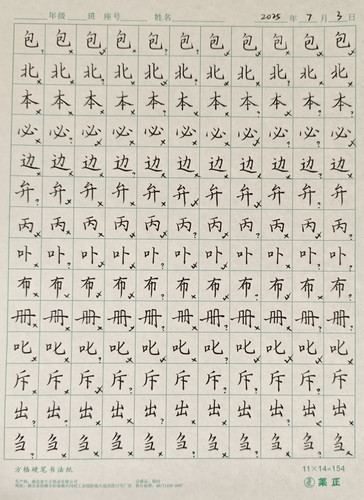 年级 班 座号 姓名 2025 年 7 月 3 日
包包包包包包包包包包包
北北北北北北北北北北北
本本本本本本本本本本本
必必必必必必必必必必必
边边边边边边边边边边边
弁弁弁弁弁弁弁弁弁弁弁
丙丙丙丙丙丙丙丙丙丙丙
卟卟卟卟卟卟卟卟卟卟卟
布布布布布布布布布布布
册册册册册册册册册册册
叱叱叱叱叱叱叱叱叱叱叱
斥斥斥斥斥斥斥斥斥斥斥
出出出出出出出出出出出
刍刍刍刍刍刍刍刍刍刍刍
方格硬笔书法纸
11×14=154